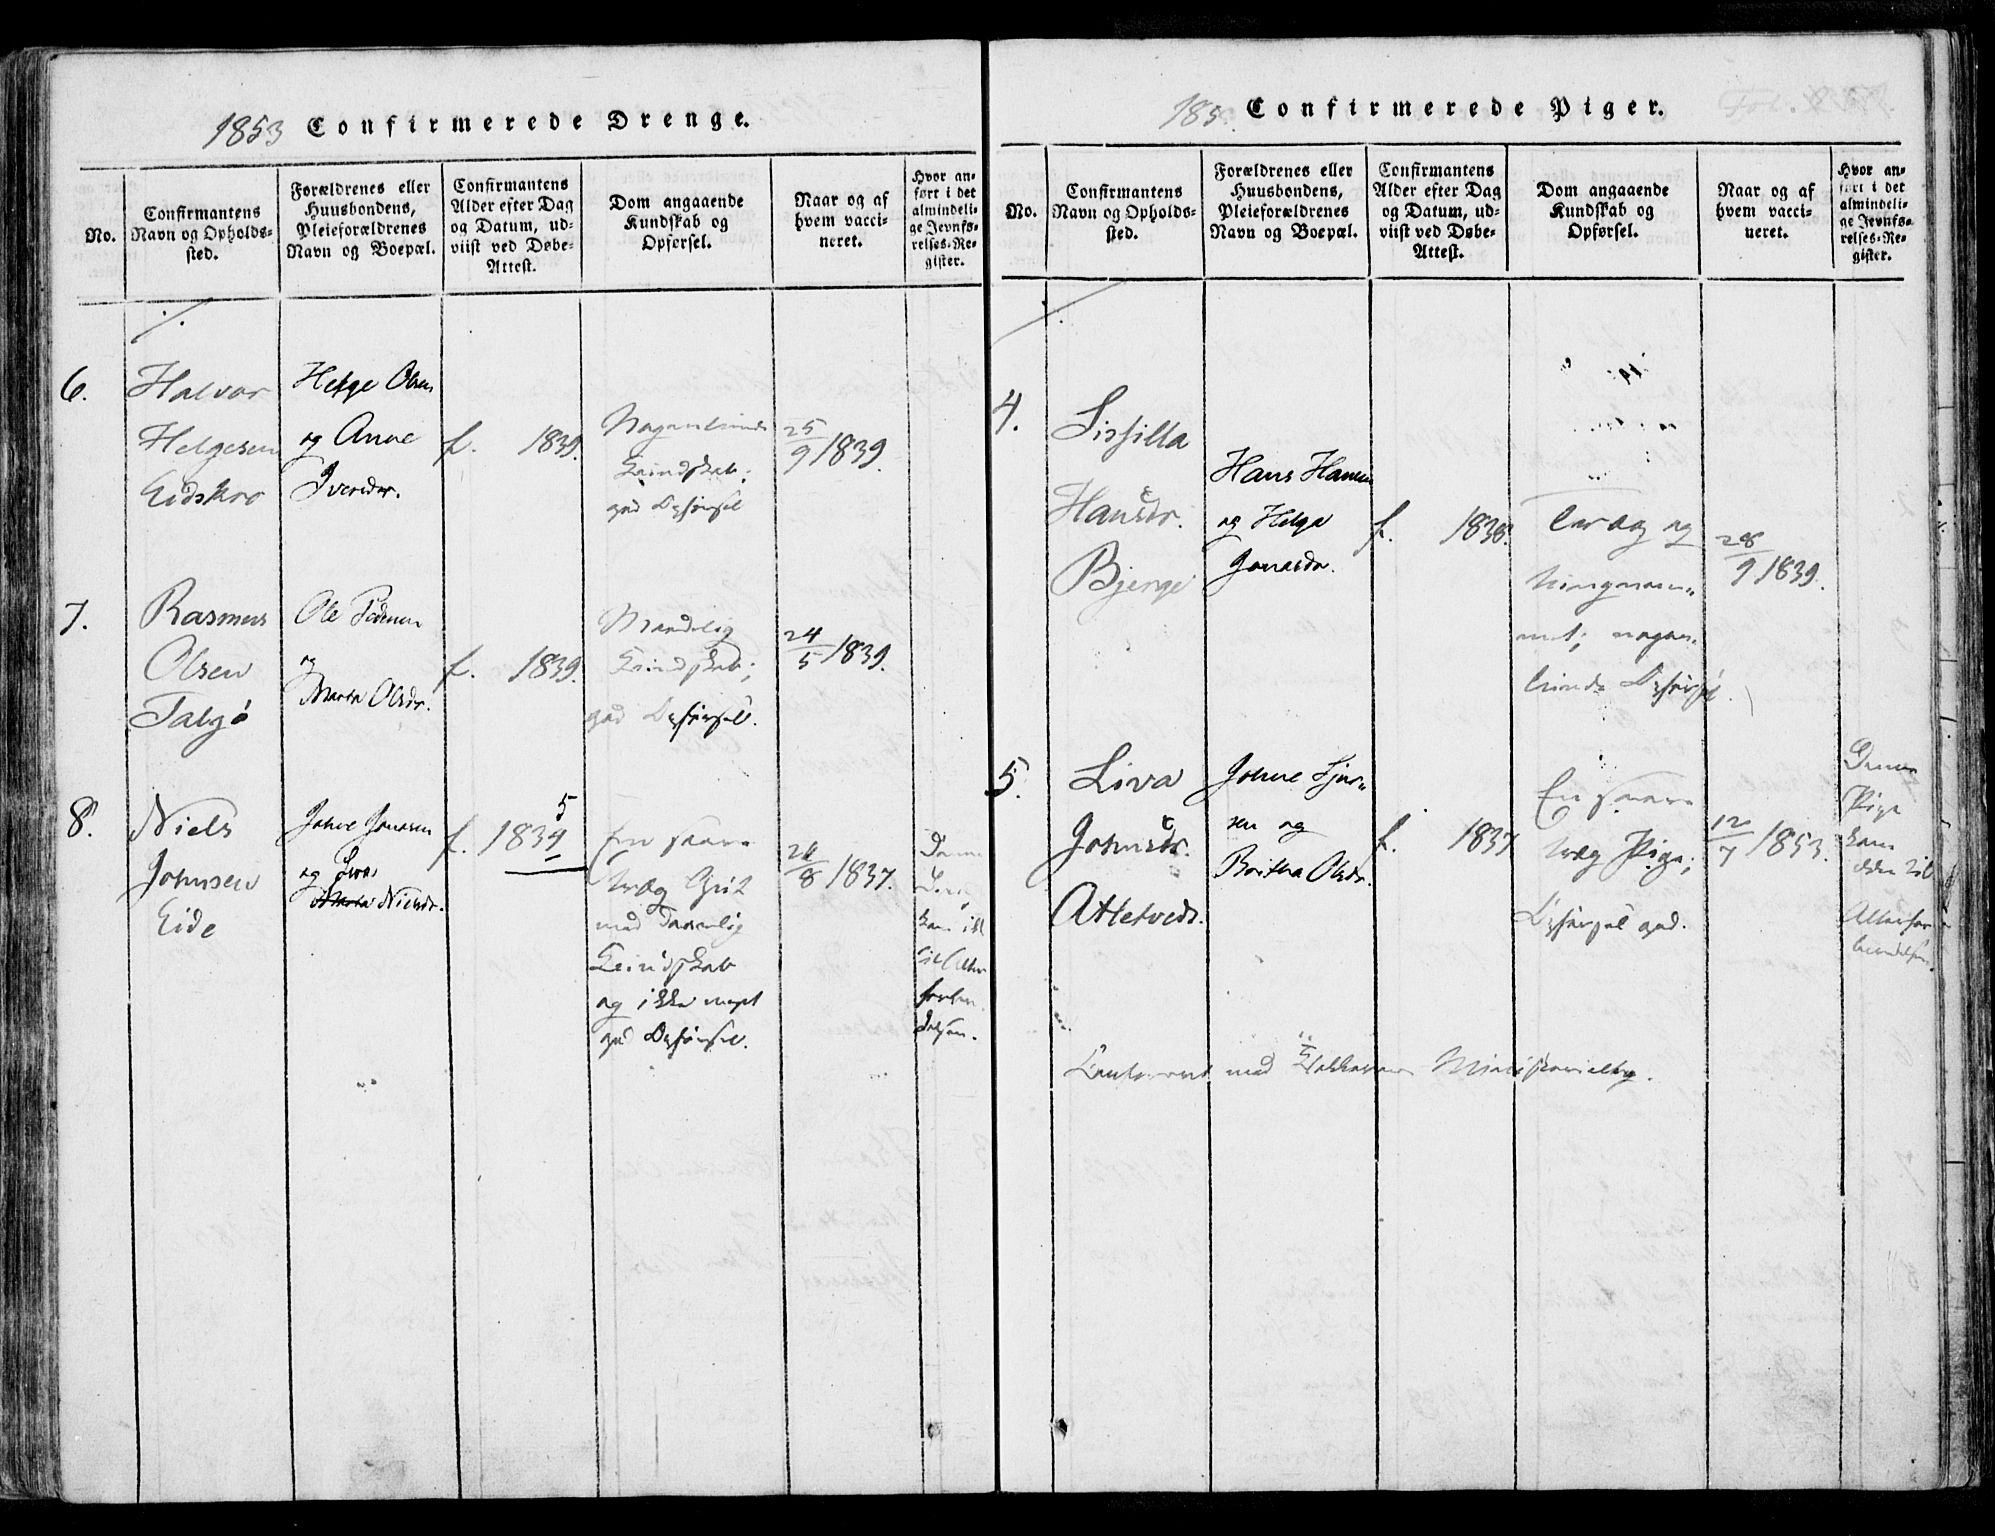 1853 Confirmerede Drenge.
No.
Confirmantens
Navn og Opholds-
sted.
Forældrenes eller
Huusbondens,
Pleieforældrenes
Navn og Boepæl.
Confirmantens
Alder efter Dag
og Datum, ud-
viist ved Døbe-
Attest.
Dom angaaende
Kundskab og
Opførsel.
Naar og af
hvem vacci-
neret.
Hvor an-
ført i det
almindeli-
ge Jevnfø-
relses-Re-
gister.
6.
Halvor
Helgesen
Eidskro
Helge Olsen
og Anne
Iversdr.
f. 1839.
Kundskab;
god Opførsel
25/9 1839.
7.
Rasmus
Olsen
Talgø
Ole
og
Marta Olsdr.
f. 1839.
Maadelig
Kundskab;
god Opførsel.
24/5 1839.
8.
Niels
Johnsen
Eide
Johne Jonasen
og
Nielsdr.
5
f. 1834
En svare
træg Gut
med daarlig
Kundskab
og ikke meget
god Opførsel.
26/8 1837.
Denne
Dreng
kom ikke
til Alter
forben
delsen.
185 Confirmerede Piger.
No.
Confirmantens
Navn og Opholds-
sted.
Forældrenes eller
Huusbondens,
Pleieforældrenes
Navn og Boepæl.
Confirmantens
Alder efter Dag
og Datum, ud-
viist ved Døbe-
Attest.
Dom angaaende
Kundskab og
Opførsel.
Naar og af
hvem vacci-
neret.
Hvor an-
ført i det
almindeli-
ge Jevnfø-
relses-Re-
gister.
4.
Sissilla
Hansdr.
Bjerge
Hans Hansen
og Helga
Jonasdr.
f. 1838.
og
Opførsel.
28/9 1839.
5.
Liva
Johnsdr.
Atletveds.
Johne
sen og
Britha Olsdr.
f. 1837
En svare
træg Pige;
Opførsel god.
12/7 1853.
Denne
Pige
kom
ikke til
Alterfor
bendelsen.
med Ministerialbog.